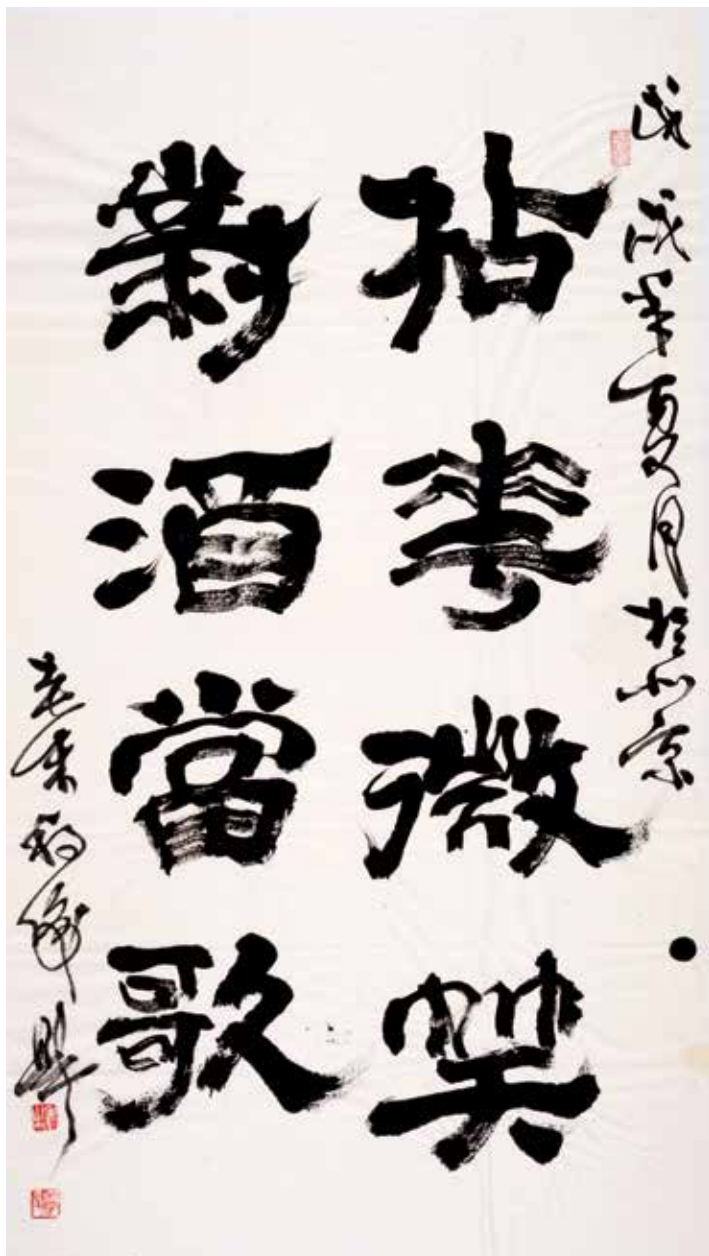 戊戌年夏月於北京
拈花微笑
對酒當歌